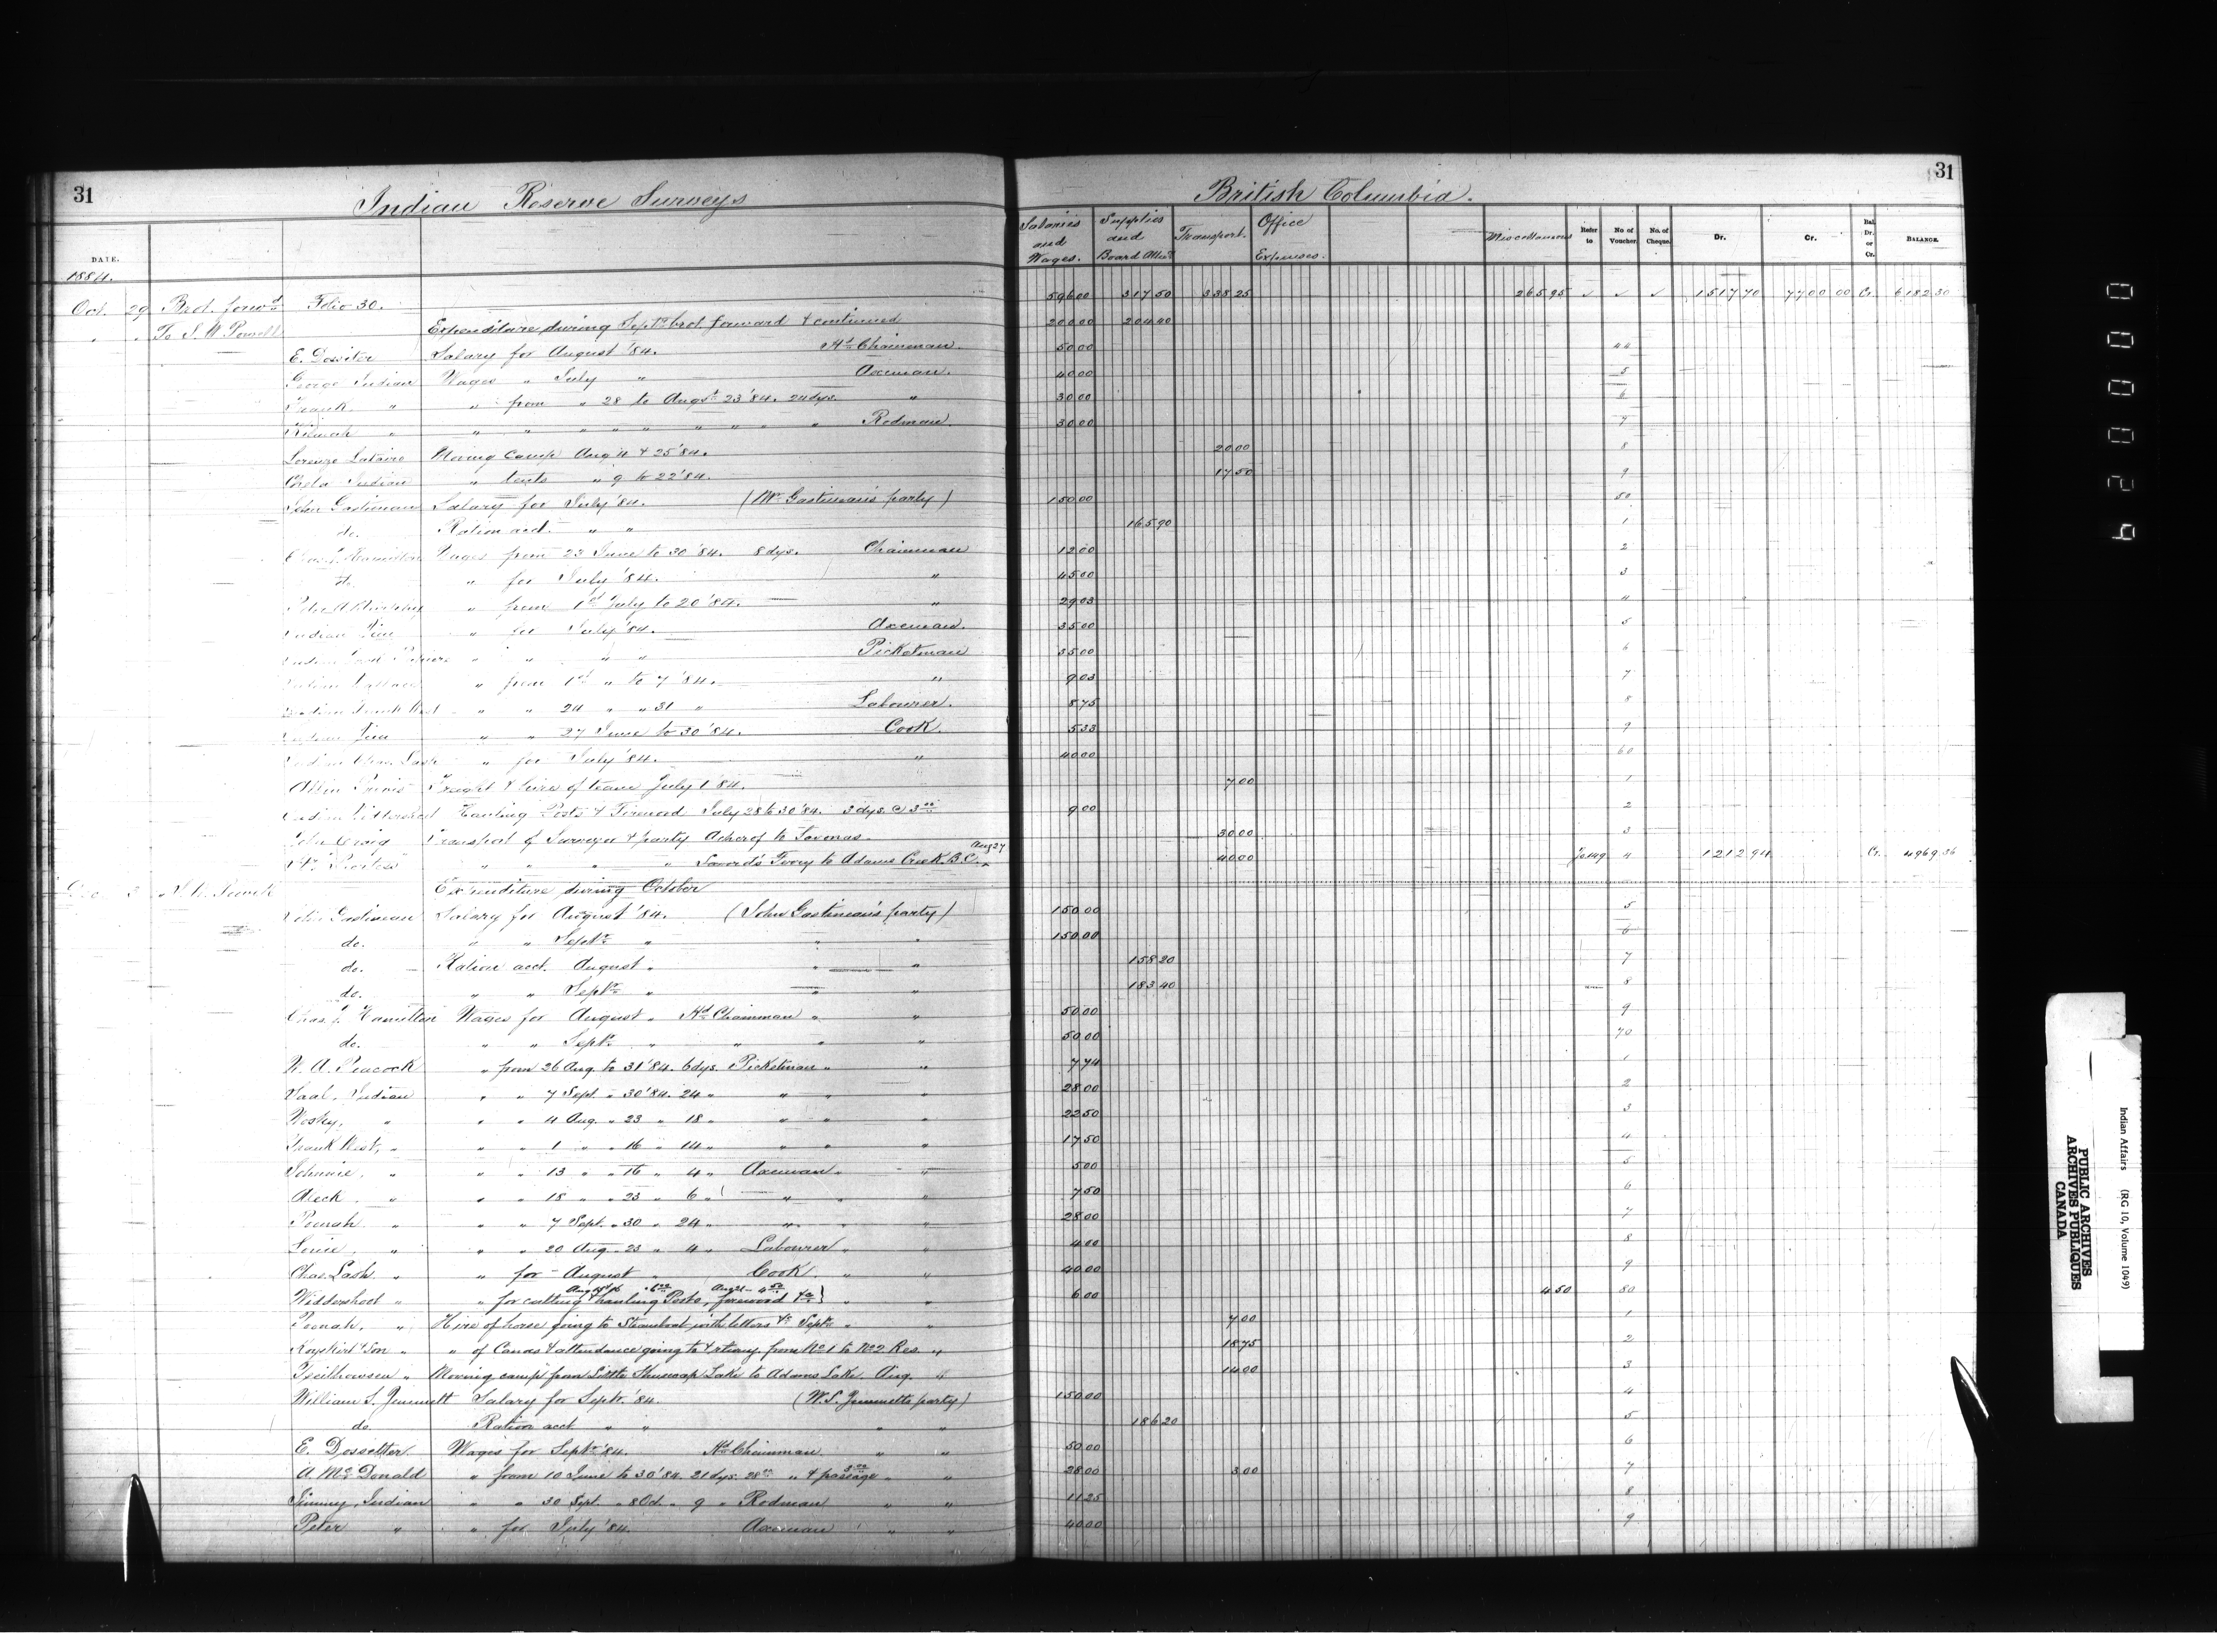 31
Indian Reserve Surveys
British Columbia.
31
DATE. Salaries and Wages. Supplies and Board Allce. Transport. Office Expenses. Miscellaneous Refer to No. of Voucher. No. of Cheque. Dr. Cr. Bal. Dr. or Cr. BALANCE.
1884.
Oct. 29 Brot. forwd. Folio 30. 596 00 317 50 338 25 265 95 ✓ ✓ ✓ 1517 70 7700 00 Cr. 6182 30
" " To Powell Expenditure during Septr. brot. forward & continued 200 00 204 40
E. Salary for August '84. Hd. Chainman. 50 00 44
George Indian Wages " July " Axeman. 40 00 5
Frank " " from " 28 to Augst. 23 '84. 24 dys. " 30 00 6
" " " " " " " " " " Rodman. 30 00 7
Lorenzo Moving camp Aug. 11 & 25 '84. 20 00 8
Indian " tents " 9 to 22 '84. 17 50 9
John Gastineau Salary for July '84. (Mr. Gastineau's party) 150 00 50
do. Ration acct. " " 165 90 1
Chas. Hamilton Wages from 23 June to 30 '84. 8 dys. Chainman 12 00 2
do. " for July '84. " 45 00 3
Peter " from 1st July to 20 '84. " 29 03 4
Indian Jim " for July '84. Axeman. 35 00 5
Indian " " " " Picketman 35 00 6
Indian " from 1st " to 7 '84. " 9 03 7
Indian Frank West " " 24 " " 31 " Labourer. 8 75 8
Indian Jim " " 27 June to 30 '84. Cook. 5 33 9
Indian Chas. Lash " for July '84. " 40 00 60
Freight & hire of team July 1 '84. 7 00 1
Indian Hauling Posts & Firewood July 28 to 30 '84. 3 dys. @ 3 00 9 00 2
John Craig Transport of Surveyor & party Ashcroft to Savonas. 30 00 3
" " " " Savona's Ferry to Adams Creek B.C. Aug 27 40 00 Jo. 149 4 1212 94 Cr. 4969 36
Dec 3 Powell Expenditure during October
John Gastineau Salary for August '84. (John Gastineau's party) 150 00 5
do. " " Septr. " " " 150 00 6
do. Ration acct. August " " " 158 20 7
do. " " Septr. " " " 183 40 8
Chas. Hamilton Wages for August " Hd. Chainman " " 50 00 9
do. " " Septr. " " " " 50 00 70
A. Peacock " from 26 Aug. to 31 '84. 6 dys. Picketman " " 7 74 1
Saal, Indian " " 7 Sept. " 30 '84. 24 " " " " 28 00 2
" " " 4 Aug. " 23 " 18 " " " " 22 50 3
Frank West, " " " 1 " " 16 " 14 " " " " 17 50 4
" " " 13 " " 16 " 4 " Axeman " " 5 00 5
Aleck, " " " 18 " " 23 " 6 " " " " 7 50 6
" " " 7 Sept. " 30 " 24 " " " " 28 00 7
Louie, " " " 20 Aug. " 23 " 4 " Labourer " " 4 00 8
Chas. Lash " " for August " Cook. " " 40 00 9
" " for cutting & hauling Posts, firewood &c. } " " 6 00 4 50 80
" Hire of horse going to Steamboat with letters &c. Septr. " " 7 00 1
& Son " " of Canoe & attendance going to & returng. from No. 1 to No. 2 Res. " 18 75 2
" Moving camp from Little Shuswap Lake to Adams Lake. Aug. " 14 00 3
William S. Jemmett Salary for Septr. '84. (W. S. Jemmetts party) 150 00 4
do. Ration acct. " " " " 186 20 5
E. Dossetter. Wages for Septr. '84. Hd. Chainman " " 50 00 6
A. McDonald " from 10 June to 30 '84. 21 dys. 28 00 " & passage 3 00 " " 28 00 3 00 7
Jimmy, Indian " " 30 Sept. " 8 Oct. " 9 " Rodman " " 11 25 8
Peter " " for July '84. Axeman " " 40 00 9
000024
Indian Affairs (RG 10, Volume 1049)
PUBLIC ARCHIVES
ARCHIVES PUBLIQUES
CANADA